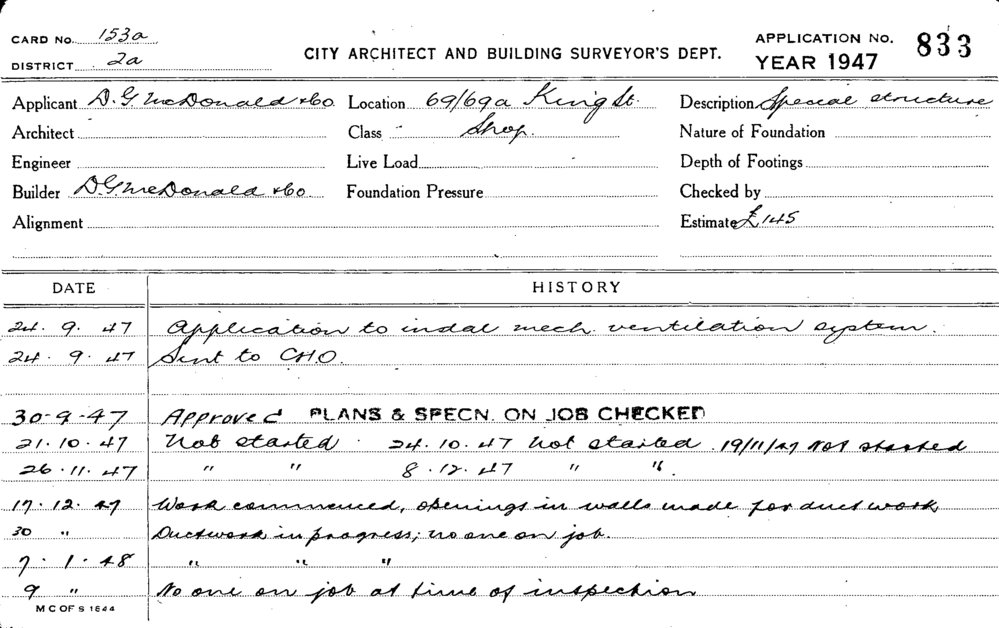 CARD No. 153a
DISTRICT 2a
CITY ARCHITECT AND BUILDING SURVEYOR'S DEPT.
APPLICATION No. 833
YEAR 1947
Applicant D.G. McDonald & Co. Location 69/69a King St. Description Special structure
Architect Class Shop. Nature of Foundation
Engineer Live Load Depth of Footings
Builder D.G. McDonald & Co. Foundation Pressure Checked by
Alignment Estimate £145
DATE HISTORY
24. 9. 47 Application to instal mech. ventilation system.
24. 9. 47 Sent to CHO.
30-9-47 Approved PLANS & SPECN. ON JOB CHECKED
21.10.47 Not started 24.10.47 Not started. 19/11/47 Not started
26.11.47 " " 8.12.47 " ".
17.12.47 Work commenced, openings in walls made for duct work
30 " Ductwork in progress; no one on job.
7.1.48 " " "
9 " No one on job at time of inspection
M C OF S 1644